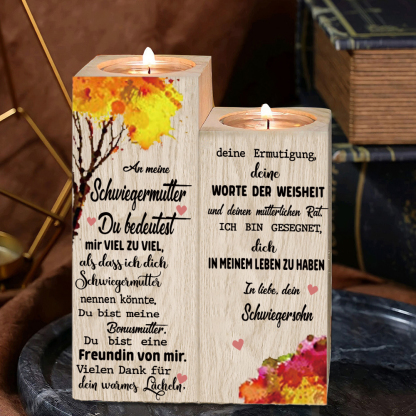 An meine
Schwiegermutter
Du bedeutest
mir VIEL ZU VIEL,
als dass ich dich
Schwiegermutter
nennen könnte,
Du bist meine
Bonusmutter.
Du bist eine
Freundin von mir.
Vielen Dank für
dein warmes Lächeln,
deine Ermutigung,
deine
WORTE DER WEISHEIT
und deinen mütterlichen Rat.
ICH BIN GESEGNET,
dich
IN MEINEM LEBEN ZU HABEN
In liebe, dein
Schwiegersohn